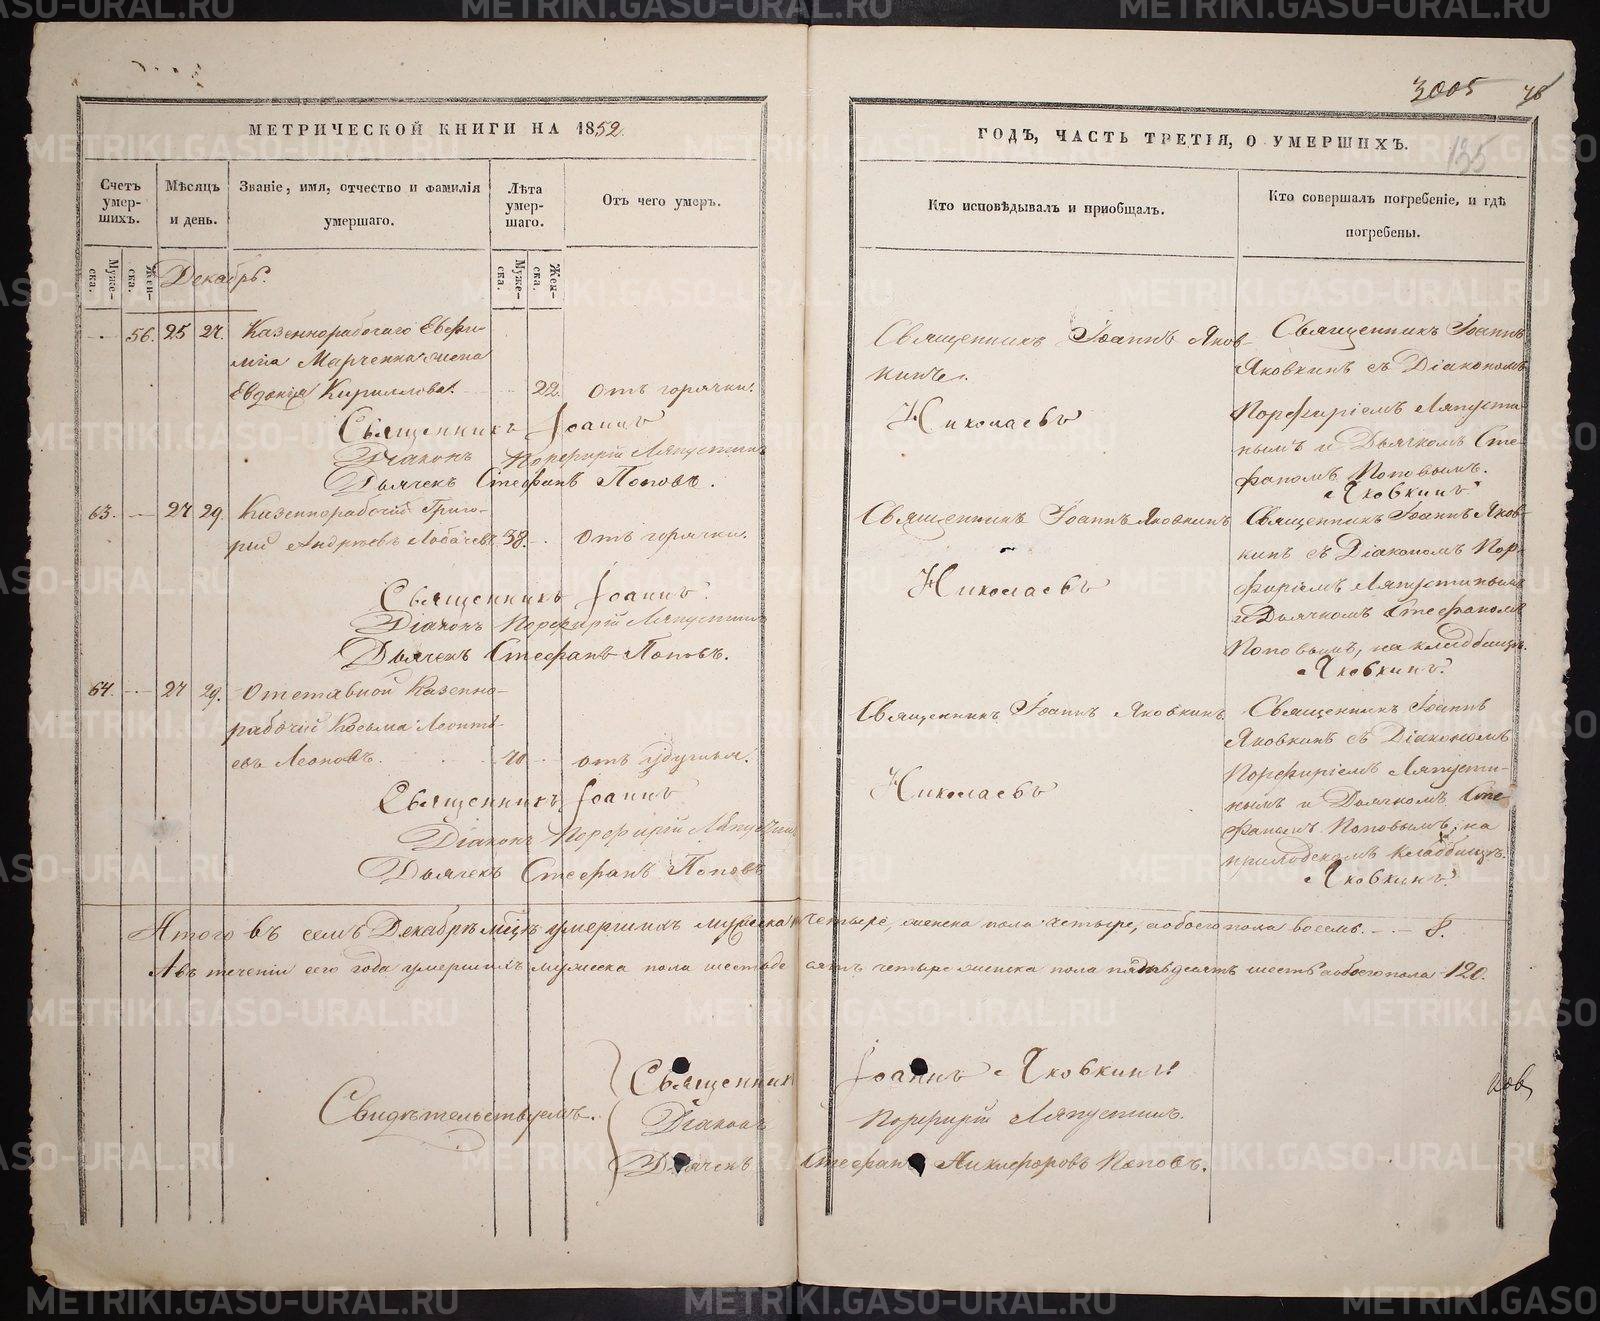 3005
76
135
МЕТРИЧЕСКОЙ КНИГИ НА 1852
Счетъ умер-шихъ.
Мѣсяцъ и день.
Званіе, имя, отчество и фамилія умершаго.
Лѣта умер-шаго.
Отъ чего умеръ.
Муже-ска.
Жен-ска.
Муже-ска.
Жен-ска.
Декабрь.
56. 25 27. Казеннорабочаго Евфи-
міа Марченка жена
Евдокія Кириллова. 22. отъ горячки.
Священникъ Іоаннъ
Діаконъ Порфирій Ляпустинъ
Дьячекъ Стефанъ Поповъ.
63. 27 29. Казеннорабочій Григо-
рій Андреевъ Лобачевъ 38. отъ горячки.
Священникъ Іоаннъ
Діаконъ Порфирій Ляпустинъ
Дьячекъ Стефанъ Поповъ.
64. 27 29. Отставной Казенно-
рабочій Косьма Леонті-
евъ Леоновъ. 70 отъ удушья.
Священникъ Іоаннъ
Діаконъ Порфирій Ляпустинъ
Дьячекъ Стефанъ Поповъ
ГОДЪ, ЧАСТЬ ТРЕТІЯ, О УМЕРШИХЪ.
Кто исповѣдывалъ и приобщалъ.
Кто совершалъ погребеніе, и гдѣ погребены.
Священникъ Іоаннъ Яков-
кинъ.
Николаевъ
Священникъ Іоаннъ
Яковкинъ съ Діакономъ
Порфиріемъ Ляпусти-
нымъ и Дьячкомъ Сте-
фаномъ Поповымъ.
Яковкинъ
Священникъ Іоаннъ Яковкинъ
Николаевъ
Священникъ Іоаннъ Яков-
кинъ съ Діакономъ Пор-
фиріемъ Ляпустинымъ
и Дьячкомъ Стефаномъ
Поповымъ, на кладбищѣ.
Яковкинъ
Священникъ Іоаннъ Яковкинъ
Николаевъ
Священникъ Іоаннъ
Яковкинъ съ Діакономъ
Порфиріемъ Ляпусти-
нымъ и Дьячкомъ Сте-
фаномъ Поповымъ, на
приходскомъ кладбищѣ.
Яковкинъ
Итого въ семъ Декабрѣ мѣцѣ умершихъ мужеска четыре, женска пола четыре, а обоего пола восемь. 8.
А въ теченіи сего года умершихъ мужеска пола шестьдесятъ четыре женска пола пятьдесятъ шесть а обоего пола 120.
Свидѣтельствуемъ.
Священникъ Іоаннъ Яковкинъ
Діаконъ Порфирій Ляпустинъ.
Дьячекъ Стефанъ Никифоровъ Поповъ.
ков
METRIKI.GASO-URAL.RU